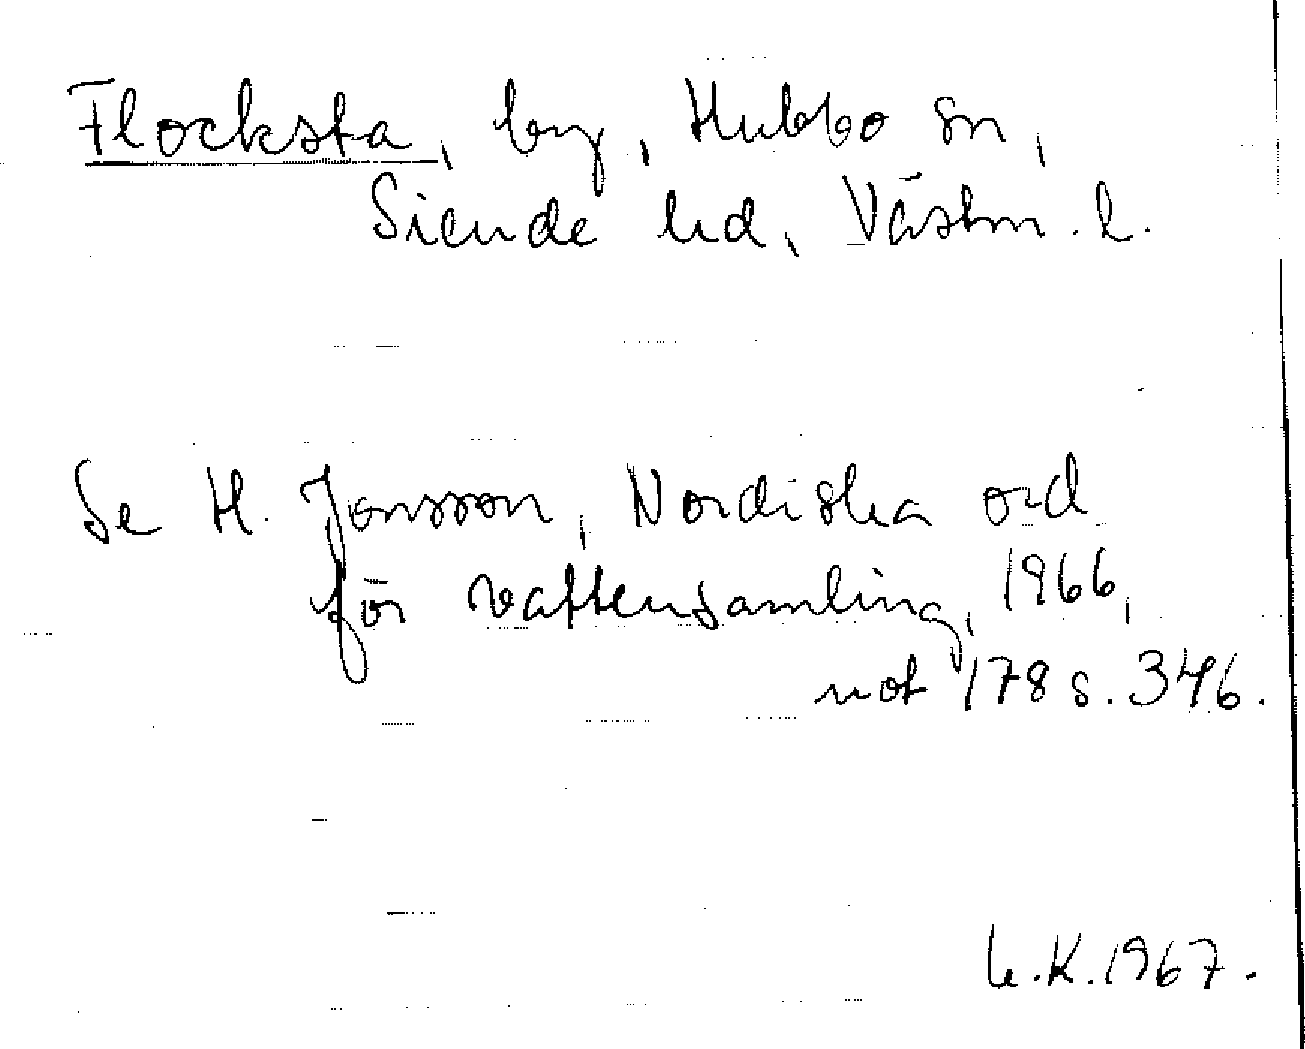 Flocksta, by, Hubbo sn,
Siende hd, Västm. l.
Se H. Jonsson, Nordiska ord
för vattensamling, 1966,
not 178 s. 346.
K. 1967.